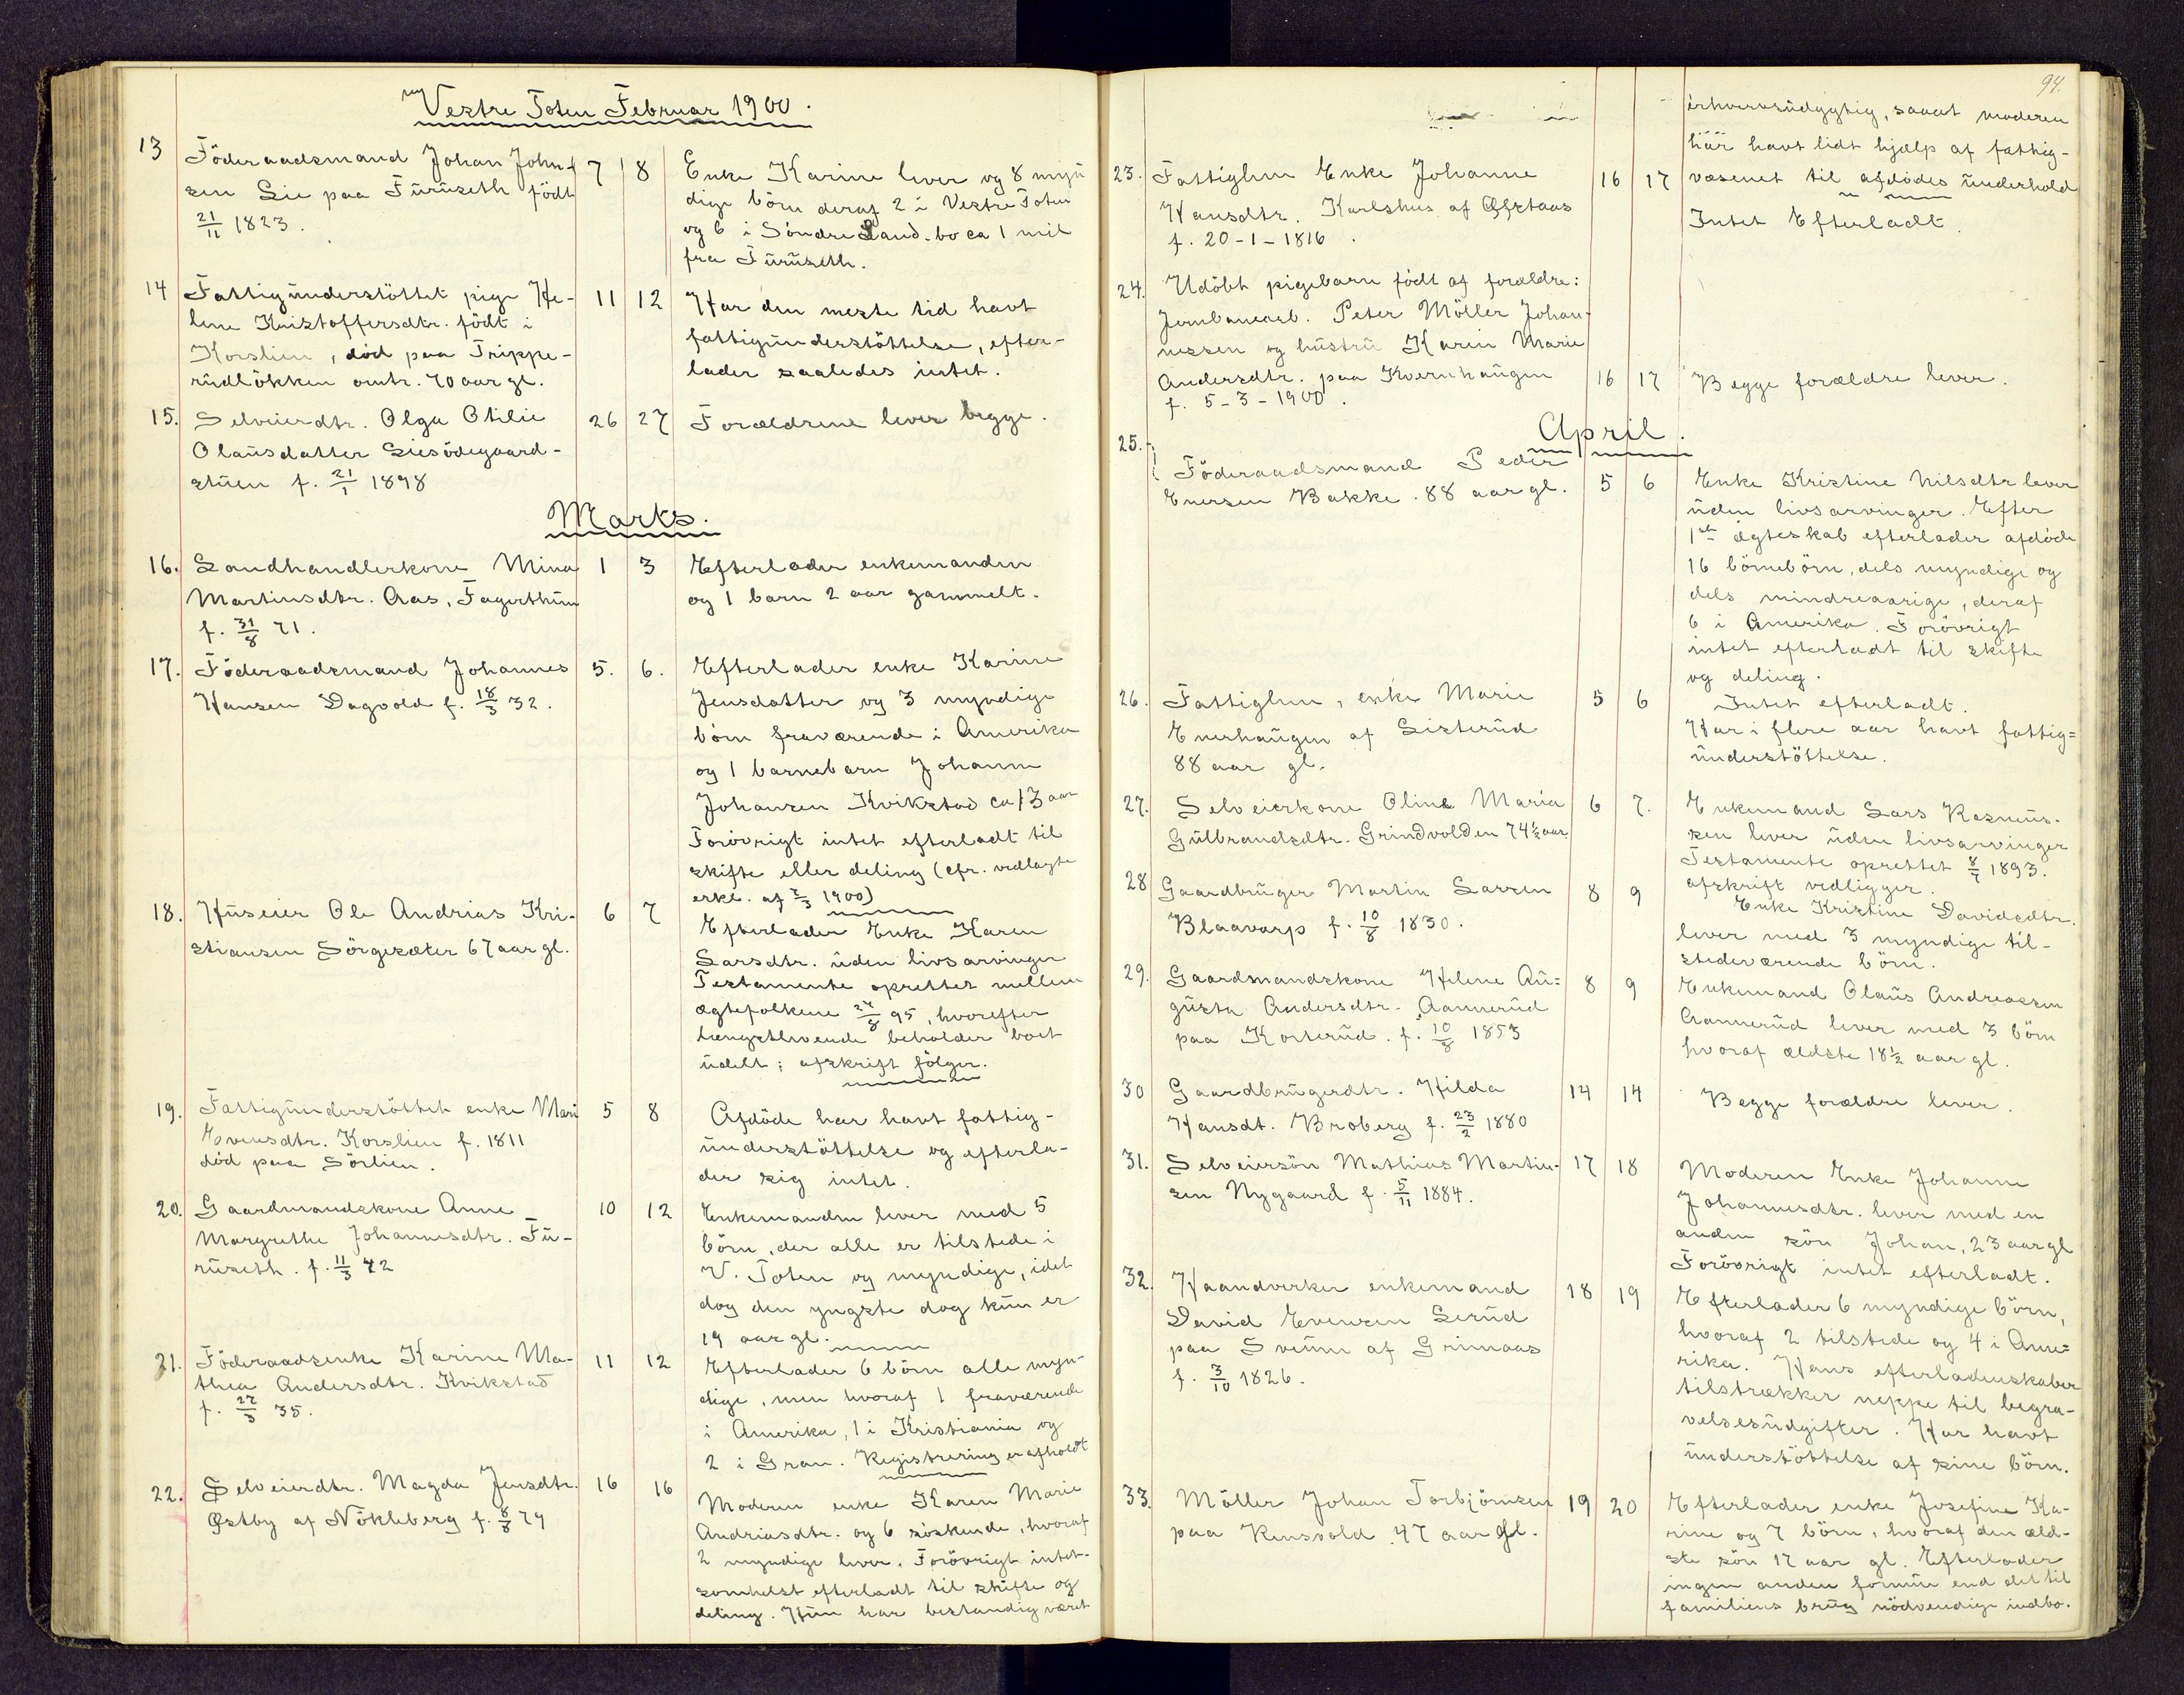 Vestre Toten Februar 1900.
13 Föderaadsmand Johan John- 7 8 Enke Karine lever og 8 myn
sen Lie paa Fürüseth födt dige börn deraf 2 i Vestre Toten
21/11 1823. og 6 i Söndre Land. bo ca 1 mil
fra Fürüseth.
14 Fattigünderstöttet pige He- 11 12 Har den meste tid havt
lene Kristoffersdtr. födt i fattigünderstöttelse, efter-
Korslien, död paa Trippe- lader saaledes intet.
rüdlökken omtr. 70 aar gl.
15. Selveierdtr. Olga Otilie 26 27 Forældrene lever begge.
Olaüsdatter Liesödegaard-
stüen f. 21/1 1898
Marts.
16. Landhandlerkone Mina 1 3 Efterlader enkemanden
Martinsdtr. Aas, Fagerthün og 1 barn 2 aar gammelt.
f. 31/8 71.
17. Föderaadsmand Johannes 5. 6. Efterlader enke Karine
Hansen Dagvold f. 18/3 32. Jensdatter og 3 myndige
börn fraværende i Amerika
og 1 barnebarn Johanne
Johansen Kvikstad ca 13 aar
Forövrigt intet efterladt til
skifte eller deling (cfr. vedlagte
erkl. af 7/3 1900)
18. Hüseier Ole Andrias Kri- 6 7 Efterlader Enke Karen
stiansen Sörgesæter 67 aar gl. Larsdtr. üden livsarvinger
Testamente oprettet mellem
ægtefolkene 24/8 95, hvorefter
længstlevende beholder boet
üdelt; afskrift fölger.
19. Fattigünderstöttet enke Mari 5 8 Afdöde har havt fattig-
Evensdtr. Korslien f. 1811 ünderstöttelse og efterla-
död paa Sörlien. der sig intet.
20. Gaardmandskone Anne 10 12 Enkemanden lever med 5
Margrethe Johannesdtr. Fü- börn, der alle er tilstede i
rüseth. f. 11/3 42 V. Toten og myndige, idet
dog den yngste dog kün er
19 aar gl.
21. Föderaadsenke Karine Ma- 11 12 Efterlader 6 börn alle myn-
thea Andersdtr. Kvikstad dige, men hvoraf 1 fraværende
f. 27/3 35. i Amerika, 1 i Kristiania og
2 i Gran. Registrering er afholdt
22. Selveierdtr. Magda Jensdtr. 16 16 Moderen enke Karen Marie
Østby af Nökleberg f. 8/8 79 Andriasdtr. og 6 söskende, hvoraf
2 myndige lever. Forövrigt intet-
somhelst efterladt til skifte og
deling. Hün har bestandig været
94.
erhvervsüdygtig, saaat moderen
här havt lidt hjælp af fattig-
23. Fattiglem Enke Johanne 16 17 væsenet til afdödes ünderhold
Hansdtr. Karlshus af Ofstaas Intet Efterladt.
f. 20-1-1816.
24. Udöbt pigebarn födt af forældre:
Jernbanearb. Peter Möller Johan-
nessen og hüstrü Karen Marie
Andersdtr. paa Kvernhaügen 16 17 Begge forældre lever.
f. 5-3-1900.
April.
25. Föderaadsmand Peder
Enersen Bakke. 88 aar gl. 5 6 Enke Kristine Nilsdtr lever
üden livsarvinger. Efter
1st ægteskab efterlader afdöde
16 börnebörn, dels myndige og
dels mindreaarige, deraf
6 i Amerika. Forövrigt
intet efterladt til skifte
og deling.
26. Fattiglem, enke Marie 5 6 Intet efterladt.
Enerhaügen af Sisterüd Har i flere aar havt fattig=
88 aar gl. ünderstöttelse.
27. Selveierkone Oline Maria 6 7. Enkemand Lars Rasmüs-
Gülbrandsdtr. Grindvolden 74½ aar sen lever üden livsarvinger
Testamente oprettet 8/7 1893.
afskrift vedligger.
28 Gaardbrüger Martin Larsen 8 9 Enke Kristine Davidsdtr.
Blaavarp f. 10/8 1830. lever med 3 myndige til-
stedeværende börn.
29. Gaardmandskone Helene Aü= 8 9 Enkemand Olaüs Andreassen
güsta Andersdtr. Aannerüd Aannerüd lever med 3 börn
paa Korterüd. f. 10/8 1853 hvoraf ældste 18½ aar gl.
30 Gaardbrügerdtr. Hilda 14 14 Begge forældre lever.
Hansdt. Broberg f. 23/2 1880
31. Selveiersön Mathias Martin- 17 18 Moderen Enke Johanne
sen Nygaard f. 5/11 1884. Johannesdtr. lever med en
anden sön Johan, 23 aar gl
Forövrigt intet efterladt.
32. Haandverker enkemand 18 19 Efterlader 6 myndige börn,
David Evensen Lerüd hvoraf 2 tilstede og 4 i Ame=
paa Sveüm af Grimaas rika. Hans efterladenskaber
f. 3/10 1826. tilstrækker neppe til begra-
velsesüdgifter. Har havt
ünderstöttelse af sine börn.
33. Möller Johan Torbjörnsen 19 20 Efterlader enke Josefine Ka-
paa Kensvold. 47 aar gl. rine og 7 börn, hvoraf den æld-
ste sön 17 aar gl. Efterlader
ingen anden formüe end det til
familiens brüg nödvendige indbo.